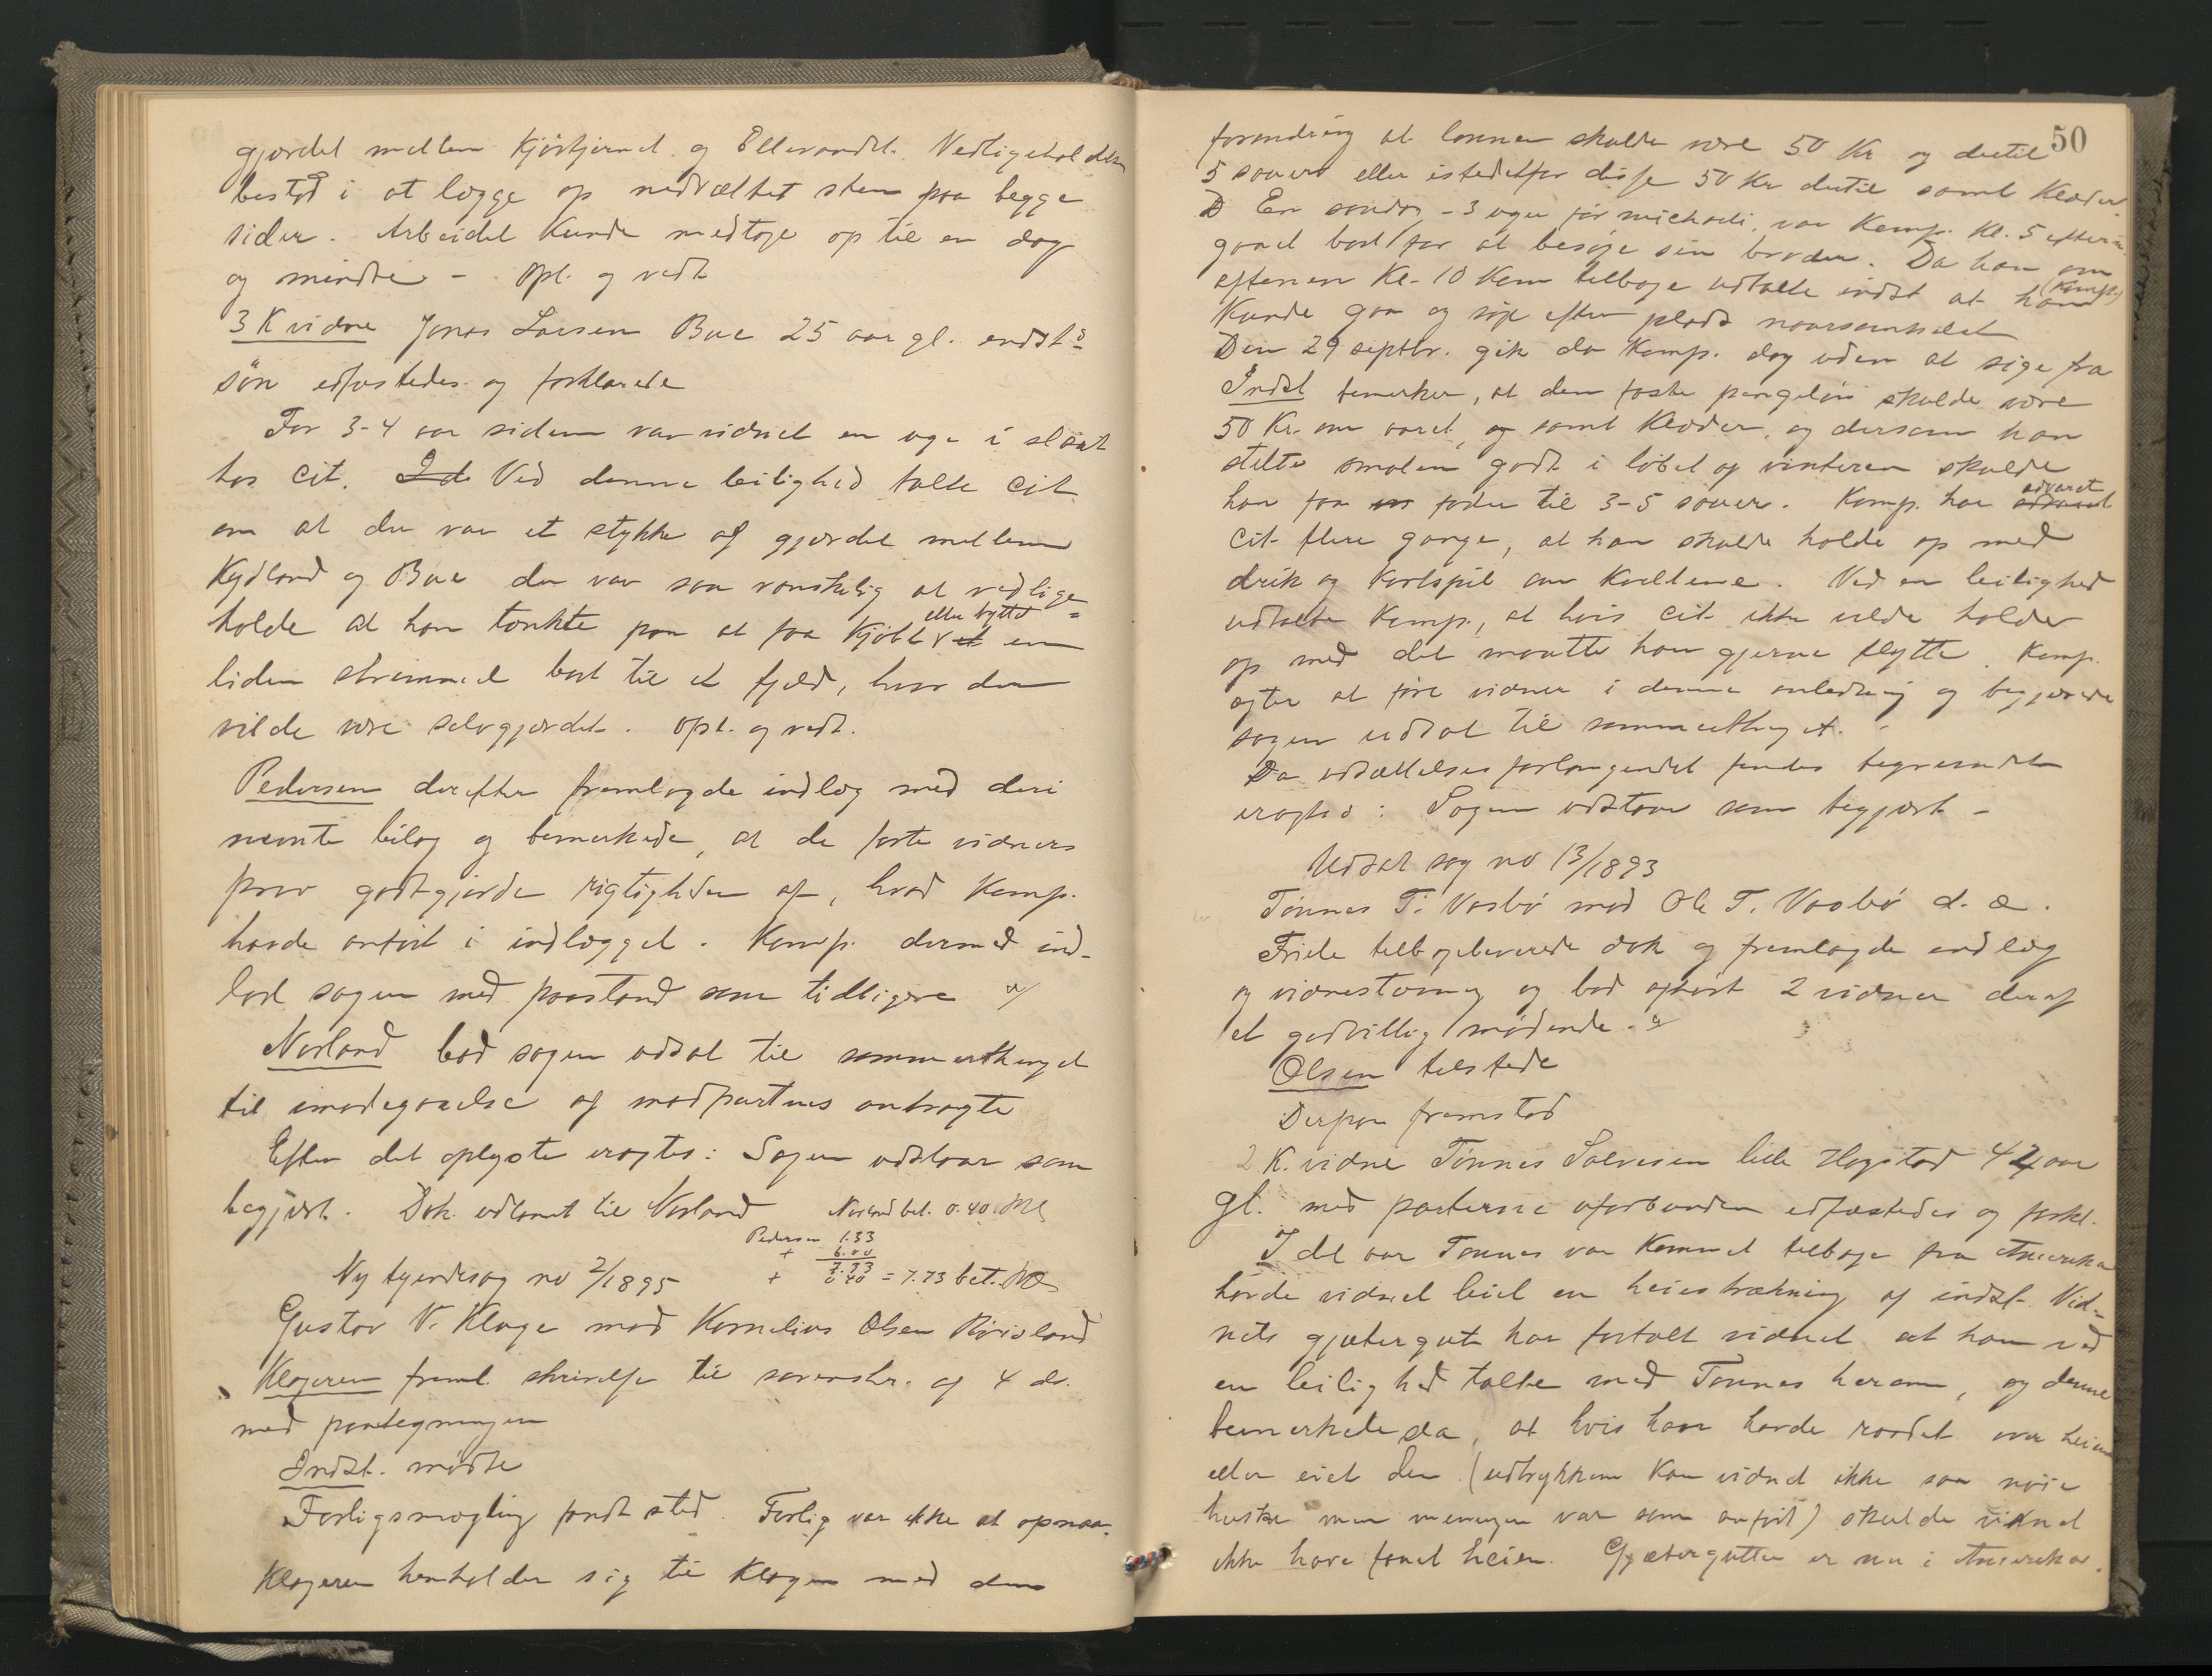 gjærdet mellem Kjörtjernet og Ellevandet. Vedligeholdelsen
bestod i at lægge op nedvæltet sten paa begge
sider. Arbeidet kunde medtage op til en dag
og mindre – Opl. og vedt.
3 K vidne Jonas Larsen Bue 25 aar gl. indst.s
sön edfæstedes og forklarede
For 3-4 aar siden var vidnet en uge i slaat
hos Cit. Ved denne leilighed talte Cit
om at der var et stykke af gjærdet mellem
Kydland og Bue der var saa vanskelig at vedlige=
holde at han tænkte paa at faa kjöbt eller byttet en
liden strimmel bort til et fjeld, hvor der
vilde være selvgjærdet. Opl. og vedt.
Pedersen derefter fremlagde indlæg med deri
nævnte bilag og bemerkede, at de förte vidners
prov godtgjorde rigtigheden af, hvad Komp.
havde anfört i indlægget. Komp. dermed ind-
lod sagen med paastand som tidligere
Norland bad sagen udsat til sommerthinget
til imödegaaelse af modpartens anbragte
Efter det oplyste eragtes: Sagen udstaar som
begjært. Dok. udlaant til Norland Norland bet. 0.40
Pedersen 1.33
+ 6.00
7.33
+ 0.40 = 7.73 bet.
Ny tjenersag no 2/1895
Gustav V. Klage mod Kornelius Olsen
Klageren freml. skrivelse til sorenskr. af 4 ds.
med paategninger
Indst. mödte
Forligsmægling fandt sted. Forlig var ikke at opnaa.
Klageren henholder sig til klagen med den
50
forandring at lönnen skulde være 50 Kr og dertil
5 sauer eller istedetfor disse 50 Kr dertil samt klæder.
En söndag – 3 uger för michaeli, var Komp. kl. 5 efterm.
gaaet bort for at besöge sin broder. Da han om
aftenen kl. 10 kom tilbage udtalte indst at han (Komp.)
kunde gaa og söge efter plads naarsomhelst
Den 29 septbr. gik da Komp. dog uden at sige fra
Indst bemerker, at den faste pengelön skulde være
50 Kr. om aaret, og samt klæder, og dersom han
stelte smalen godt i löbet af vinteren skulde
han faa foder til 3-5 sauer. Komp. har advaret
Cit. flere gange, at han skulde holde op med
drik og kortspil om kveldene. Ved en leilighed
udtalte Komp., at hvis Cit. ikke vilde holde
op med det maatte han gjerne flytte. Komp.
agter at före vidner i denne anledning og begjærede
sagen udsat til sommerthinget.
Da udsættelsesforlangendet findes begrundet
eragtes: Sagen udstaar som begjært –
Udsat sag no 13/1893
Tönnes T. Vasbö mod Ole T. Vasbö d. æ.
Friele tilbageleverede dok og fremlagde indlæg
og vidnestævning og bad afhört 2 vidner deraf
et godvillig mödende.
Olsen tilstede
Derpaa fremstod
2 K. vidne Tönnes Salvesen lille Hogstad 44 aar
gl. med parterne uforbunden edfæstedes og forkl.
I det aar Tönnes var kommet tilbage fra Amerika
havde vidnet leiet en heiestrækning af indst. Vid-
nets gjætergut har fortalt vidnet at han ved
en leilighed talte med Tönnes herom, og denne
bemerkede da, at hvis han havde raadet over heien
eller eiet den (udtrykkene kan vidnet ikke saa nöie
huske men meningen var som anfört) skulde vidnet
ikke have faaet heien. Gjætergutten er nu i Amerika.